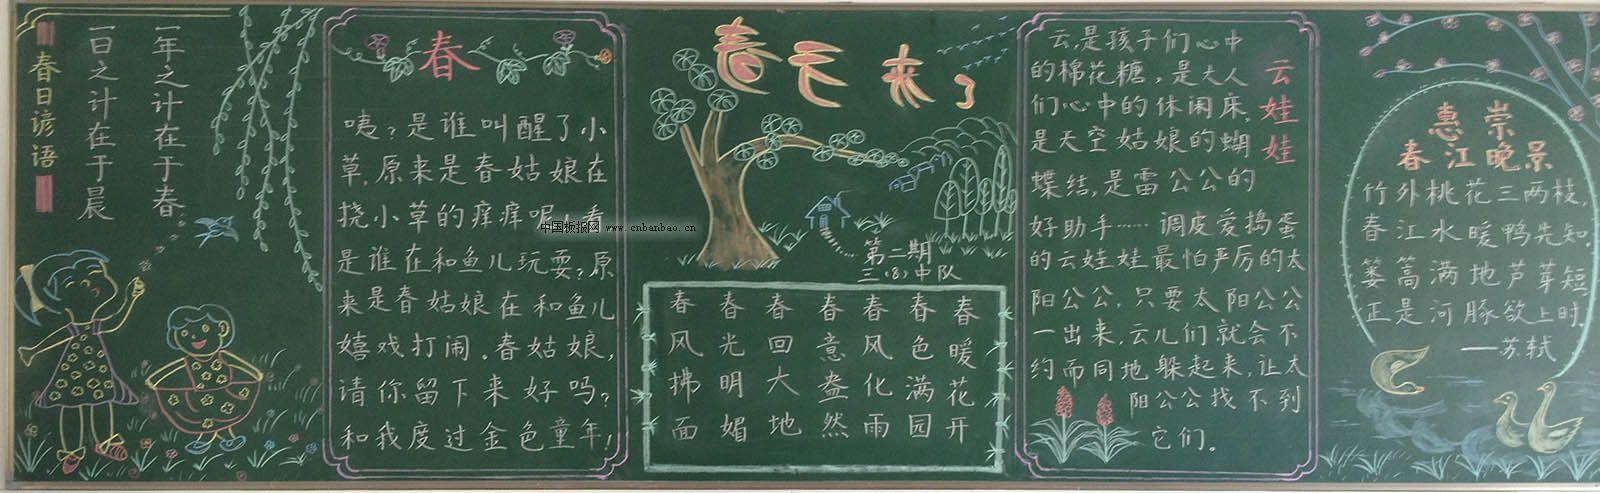 春日谚语
一年之计在于春
一日之计在于晨
春
咦？是谁叫醒了小
草，原来是春姑娘在
挠小草的痒痒呢！看
是谁在和鱼儿玩耍？原
来是春姑娘在和鱼儿
嬉戏打闹。春姑娘，
请你留下来好吗？
和我度过金色童年！
中国板报网 www.cnbanbao.cn
春天来了
第二期
三(8)中队
春风拂面
春光明媚
春回大地
春意盎然
春风化雨
春色满园
春暖花开
云娃娃
云，是孩子们心中
的棉花糖，是大人
们心中的休闲床，
是天空姑娘的蝴
蝶结，是雷公公的
好助手……调皮爱捣蛋
的云娃娃最怕严厉的太
阳公公，只要太阳公公
一出来，云儿们就会不
约而同地躲起来，让太
阳公公找不到
它们。
惠崇
春江晚景
竹外桃花三两枝，
春江水暖鸭先知。
蒌蒿满地芦芽短
正是河豚欲上时。
——苏轼